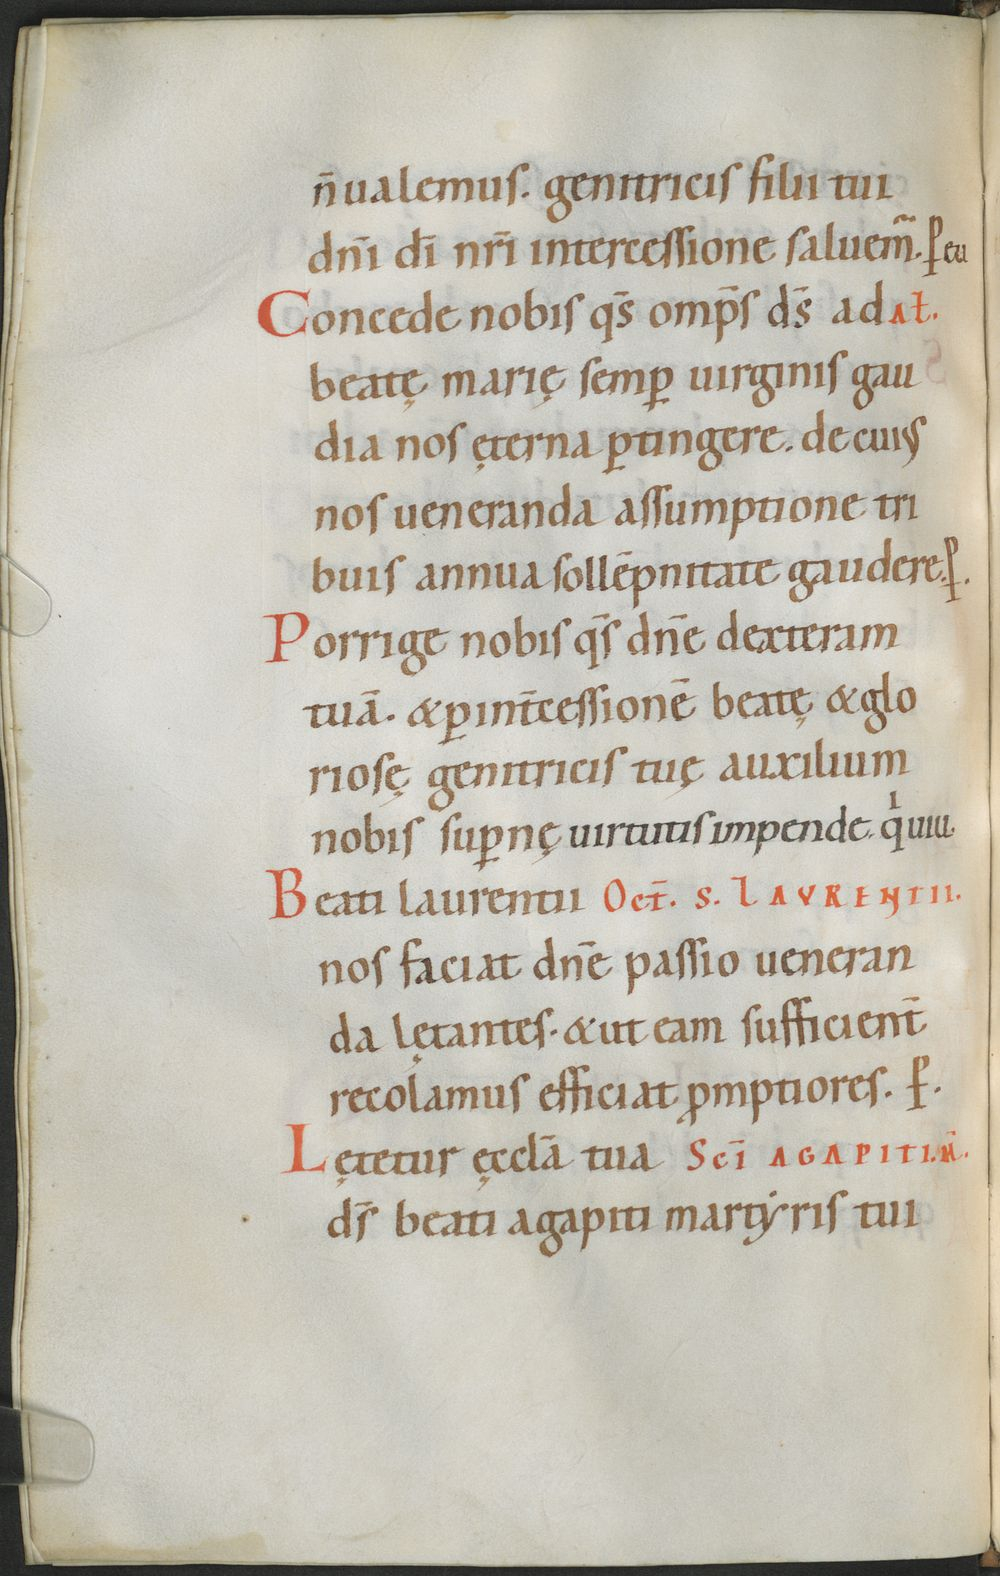 n̄ualemus. genitricis filii tui
dn̄i dī nr̄i intercessione saluem̃. ꝑ eu
Concede nobis qs̄ omp̄s ds̄ ad aƚ.
beatę marię semꝑ uirginis gau
dia nos ęterna ꝑtingere. de cuiꝰ
nos ueneranda assumptione tri
buis annua sollēpnitate gaudere. ꝑ.
Porrige nobis qs̄ dn̄e dexteram
tuā. & ꝑ int̄cessionē beatę & glo
riosę genitricis tuę auxilium
nobis suꝑnę uirtutis impende. qⁱ uiu.
Beati laurentii Oct̄. S. LAURENTII.
nos faciat dn̄e passio ueneran
da lętantes. & ut eam sufficient̄
recolamus efficiat ꝓmptiores. ꝑ.
Lętetur ęcclā tua Scī AGAPITI. M̄.
ds̄ beati agapiti martẏris tui